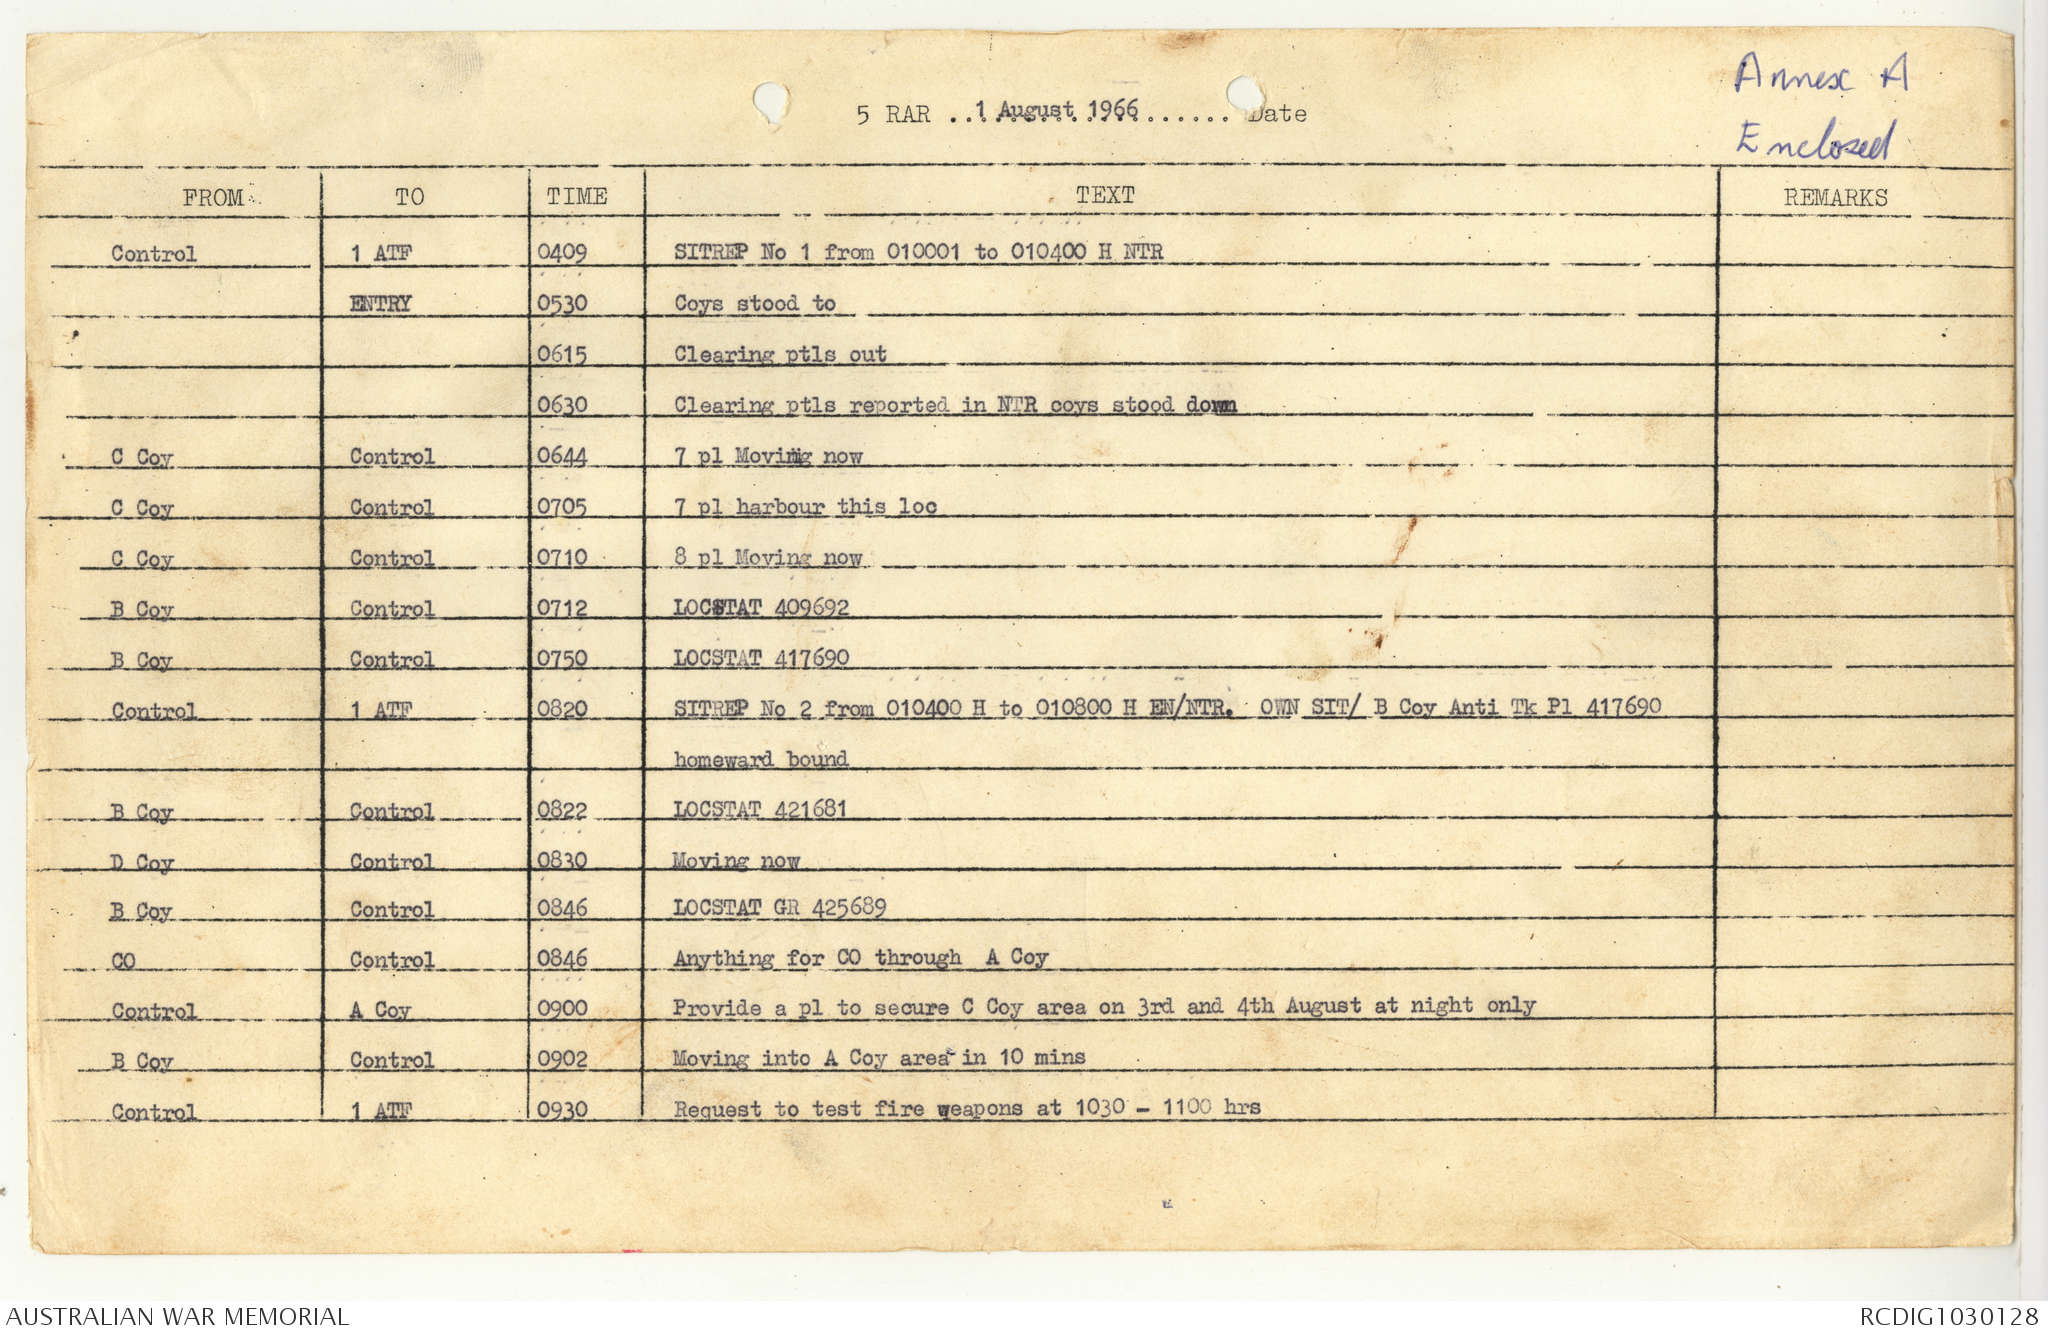 Annex A
Enclosed
5 RAR .. 1 August 1966 ...... Date
FROM TO TIME TEXT REMARKS
Control 1 ATF 0409 SITREP No 1 from 010001 to 010400 H NTR
ENTRY 0530 Coys stood to
0615 Clearing ptls out
0630 Clearing ptls reported in NTR coys stood down
C Coy Control 0644 7 pl Moving now
C Coy Control 0705 7 pl harbour this loc
C Coy Control 0710 8 pl Moving now
B Coy Control 0712 LOCSTAT 409692
B Coy Control 0750 LOCSTAT 417690
Control 1 ATF 0820 SITREP No 2 from 010400 H to 010800 H EN/NTR. OWN SIT/ B Coy Anti Tk Pl 417690
homeward bound
B Coy Control 0822 LOCSTAT 421681
D Coy Control 0830 Moving now
B Coy Control 0846 LOCSTAT GR 425689
CO Control 0846 Anything for CO through A Coy
Control A Coy 0900 Provide a pl to secure C Coy area on 3rd and 4th August at night only
B Coy Control 0902 Moving into A Coy area in 10 mins
Control 1 ATF 0930 Request to test fire weapons at 1030 - 1100 hrs
AUSTRALIAN WAR MEMORIAL RCDIG1030128